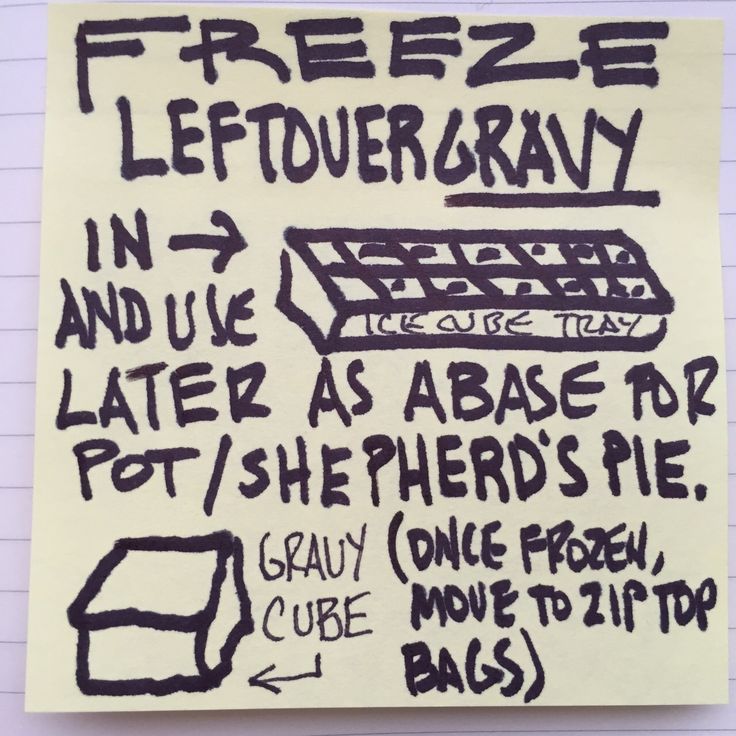 FREEZE
LEFTOVER GRAVY
IN →
AND USE
ICE CUBE TRAY
LATER AS A BASE FOR
POT/SHEPHERD'S PIE.
GRAVY
CUBE
(ONCE FROZEN,
MOVE TO ZIP TOP
BAGS)